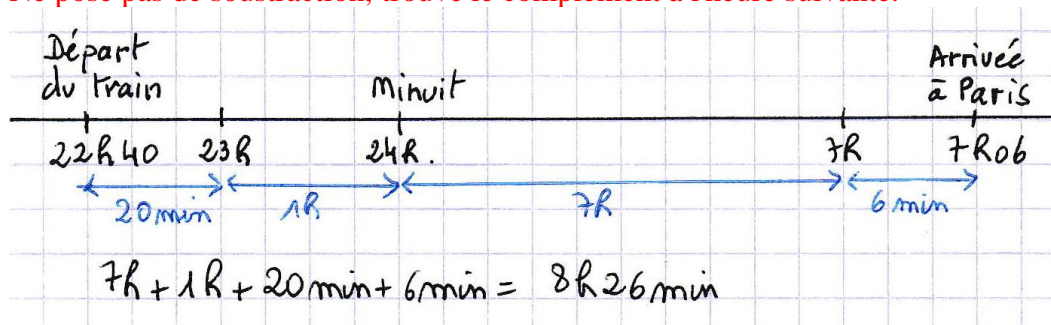 Départ
du train
Minuit
Arrivée
à Paris
22h40 23h 24h. 7h 7h06
20min 1h 7h 6 min
7h + 1h + 20min + 6min = 8h26min